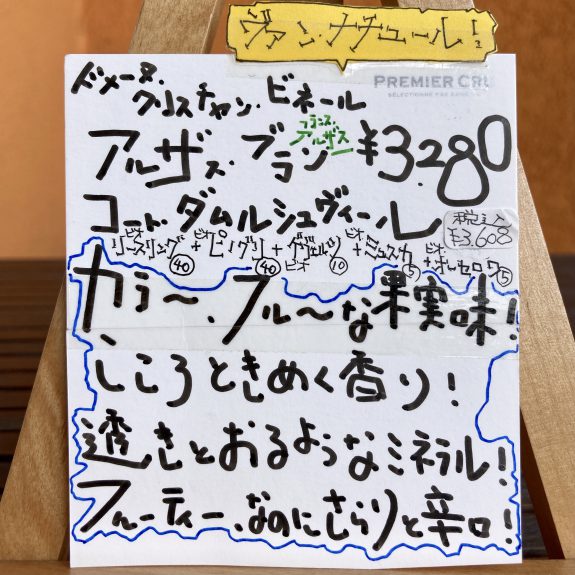 ヴァン・ナチュール!
PREMIER CRU
ドメーヌ・
クリスチャン・ビネール
フランス・
アルザス
アルザス・ブラン ¥3.280
コート・ダムルシュヴィール
税込
¥3,608
ビオ ビオ ビオ ビオ
リースリング+ピノグリ+ゲヴェルツ+ミュスカ+オーセロワ
40 40 ビオ 10 5 5
カラ〜.フル〜な果実味!
こころときめく香り!
透きとおるようなミネラル!
フルーティー.なのにさらりと辛口!